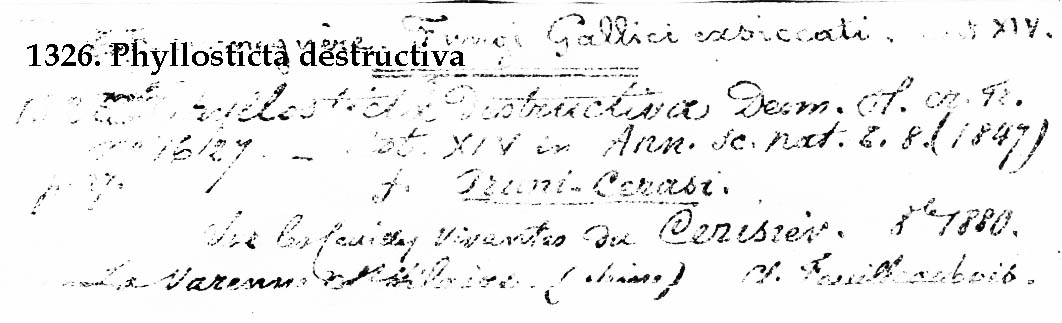 Fungi Gallici exsiccati. XIV.
1326. Phyllosticta destructiva
Phyllosticta Destructiva Desm. Pl. cr. Fr.
1627. — Not. XIV in Ann. Sc. nat. t. 8. (1847)
p. f. Pruni-Cerasi.
Sur les feuilles vivantes du Cerisier. 8bre 1880.
La Varenne St Hilaire. (Seine) Feuilleaubois.